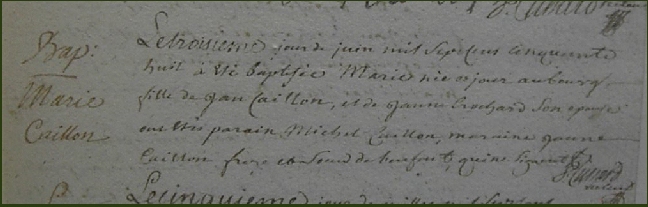 Bap:
Marie
Caillon
Le troisieme jour de juin mil sept cens cinquante
huit à été baptisée Marie née ce jour au bourg
fille de jan Caillon, et de janne Crochard son epouse
ont étés parain Michel Caillon, maraine janne
Caillon frere et soeur de l'enfant, qui ne signent
Le cinquieme jour de